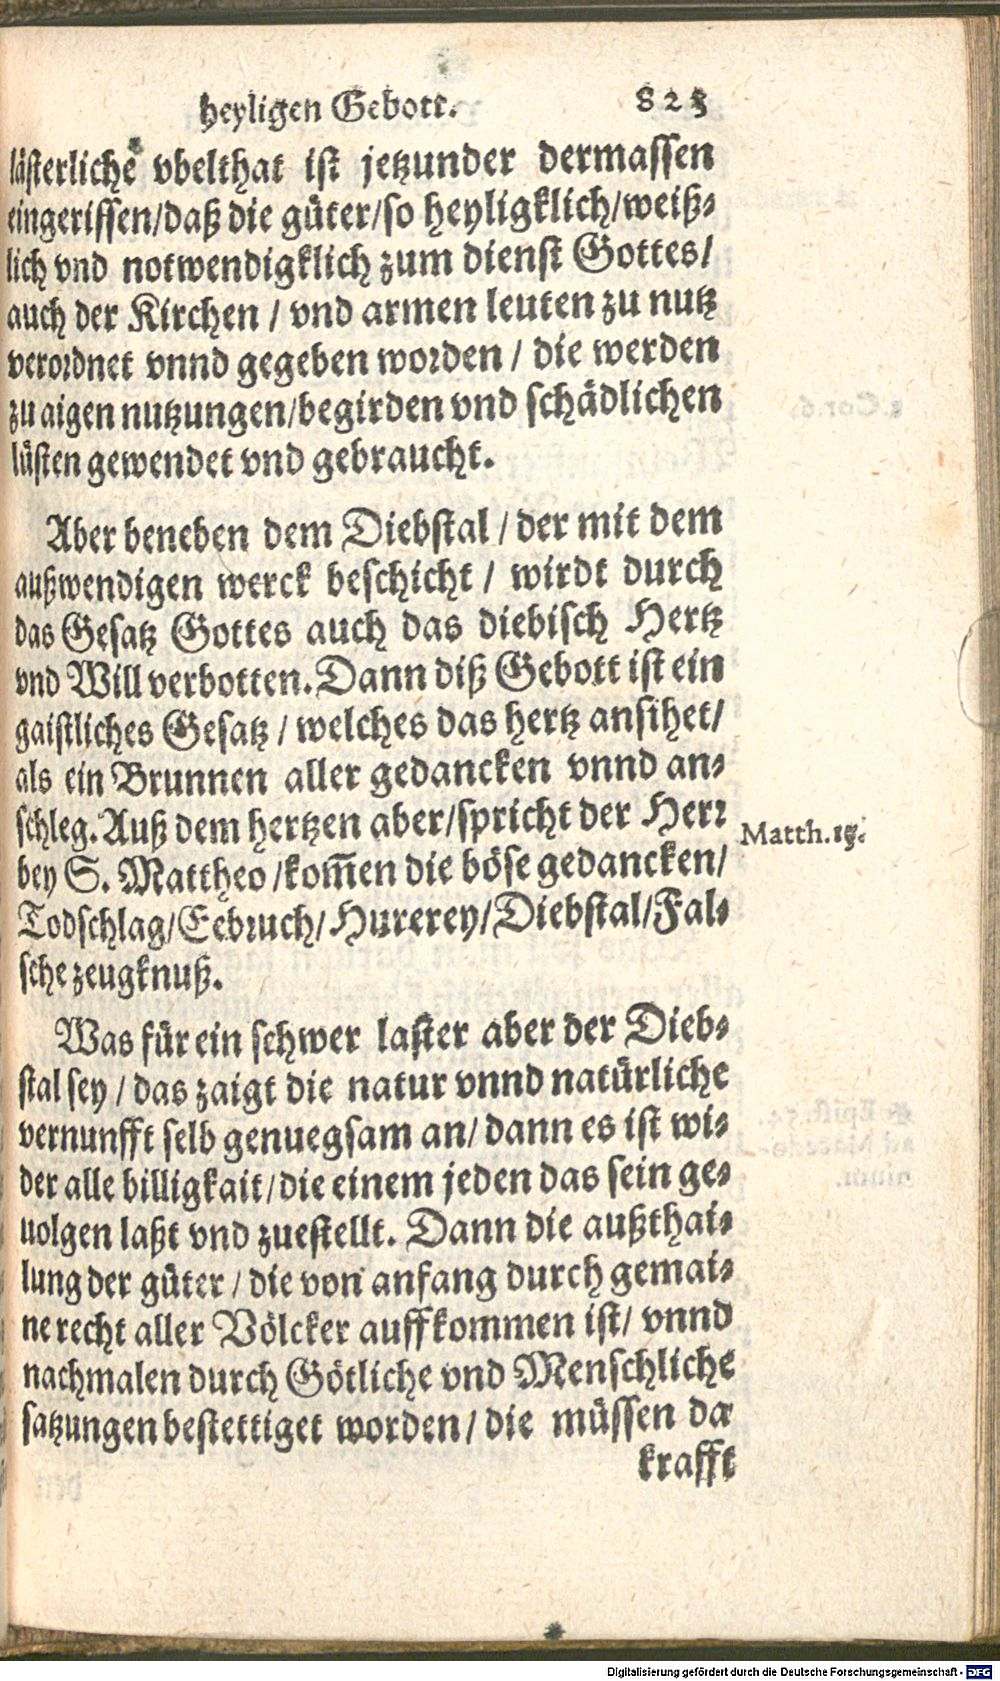 heyligen Gebott. 825
lästerliche vbelthat ist jetzunder dermassen
eingerissen/daß die güter/so heyligklich/weiß-
lich vnd notwendigklich zum dienst Gottes/
auch der Kirchen / vnd armen leuten zu nutz
verordnet vnnd gegeben worden / die werden
zu aigen nutzungen/begirden vnd schädlichen
lüsten gewendet vnd gebraucht.
Aber beneben dem Diebstal / der mit dem
außwendigen werck beschicht / wirdt durch
das Gesatz Gottes auch das diebisch Hertz
vnd Will verbotten. Dann diß Gebott ist ein
gaistliches Gesatz / welches das hertz ansihet/
als ein Brunnen aller gedancken vnnd an-
schleg. Auß dem hertzen aber/spricht der Herr
Matth. 15.
bey S. Mattheo /kom̃en die böse gedancken/
Todschlag/Eebruch/Hurerey/Diebstal/Fal-
sche zeugknuß.
Was für ein schwer laster aber der Dieb-
stal sey / das zaigt die natur vnnd natürliche
vernunfft selb genuegsam an/ dann es ist wi-
der alle billigkait/die einem jeden das sein ge-
uolgen laßt vnd zuestellt. Dann die außthai-
lung der güter / die von anfang durch gemai-
ne recht aller Völcker auffkommen ist/ vnnd
nachmalen durch Götliche vnd Menschliche
satzungen bestettiget worden / die müssen da
krafft
Digitalisierung gefördert durch die Deutsche Forschungsgemeinschaft - DFG